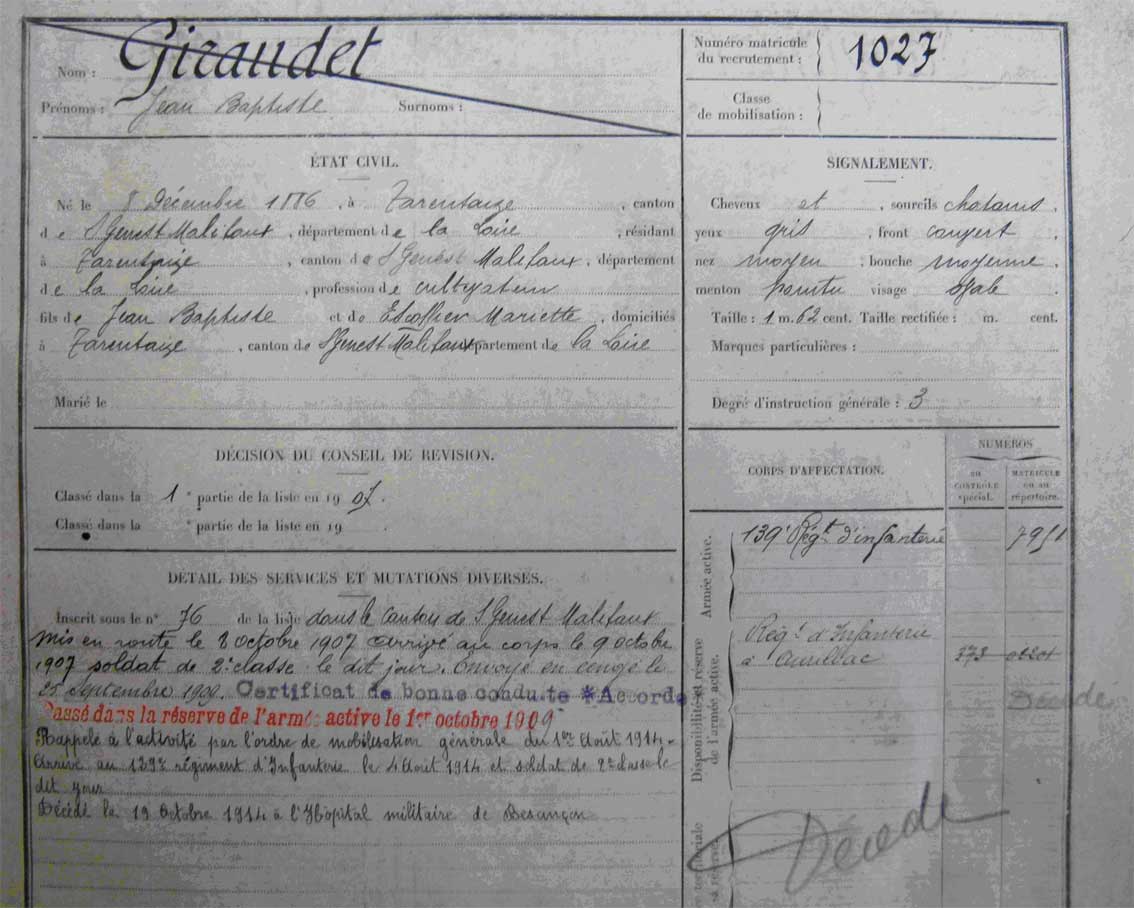 Nom : Giraudet
Prénoms : Jean Baptiste Surnoms :
Numéro matricule du recrutement : 1027
Classe de mobilisation :
ÉTAT CIVIL.
Né le 8 Décembre 1886, à Tarentaize, canton
de St Genest Malifaux, département de la Loire, résidant
à Tarentaize, canton de St Genest Malifaux, département
de la Loire, profession de cultivateur
fils de Jean Baptiste et de Escoffier Mariette, domiciliés
à Tarentaize, canton de St Genest Malifaux département de la Loire
Marié le
SIGNALEMENT.
Cheveux et, sourcils chatains,
yeux gris, front couvert,
nez moyen, bouche moyenne,
menton pointu visage ovale.
Taille : 1 m. 62 cent. Taille rectifiée : m. cent.
Marques particulières :
Degré d'instruction générale : 3
DÉCISION DU CONSEIL DE REVISION.
Classé dans la 1e partie de la liste en 1907.
Classé dans la e partie de la liste en 19
DÉTAIL DES SERVICES ET MUTATIONS DIVERSES.
Inscrit sous le n° 76 de la liste dans le Canton de St Genest Malifaux
Mis en route le 8 octobre 1907 arrivé au corps le 9 octobre
1907 soldat de 2e classe le dit jour. Envoyé en congé le
25 Septembre 1909. Certificat de bonne conduite *Accordé
Passé dans la réserve de l'armée active le 1er octobre 1909
Rappelé à l'activité par l'ordre de mobilisation générale du 1er Août 1914.
Arrivé au 139e régiment d'Infanterie le 4 Août 1914 et soldat de 2e classe le
dit jour
Décédé le 19 Octobre 1914 à l'Hôpital militaire de Besançon
CORPS D'AFFECTATION.
NUMÉROS
au contrôle spécial.
MATRICULE ou au répertoire.
Armée active.
139e Régt d'infanterie
Disponibilité et réserve de l'armée active.
Régt d'Infanterie
à Aurillac
Décédé
Décédé